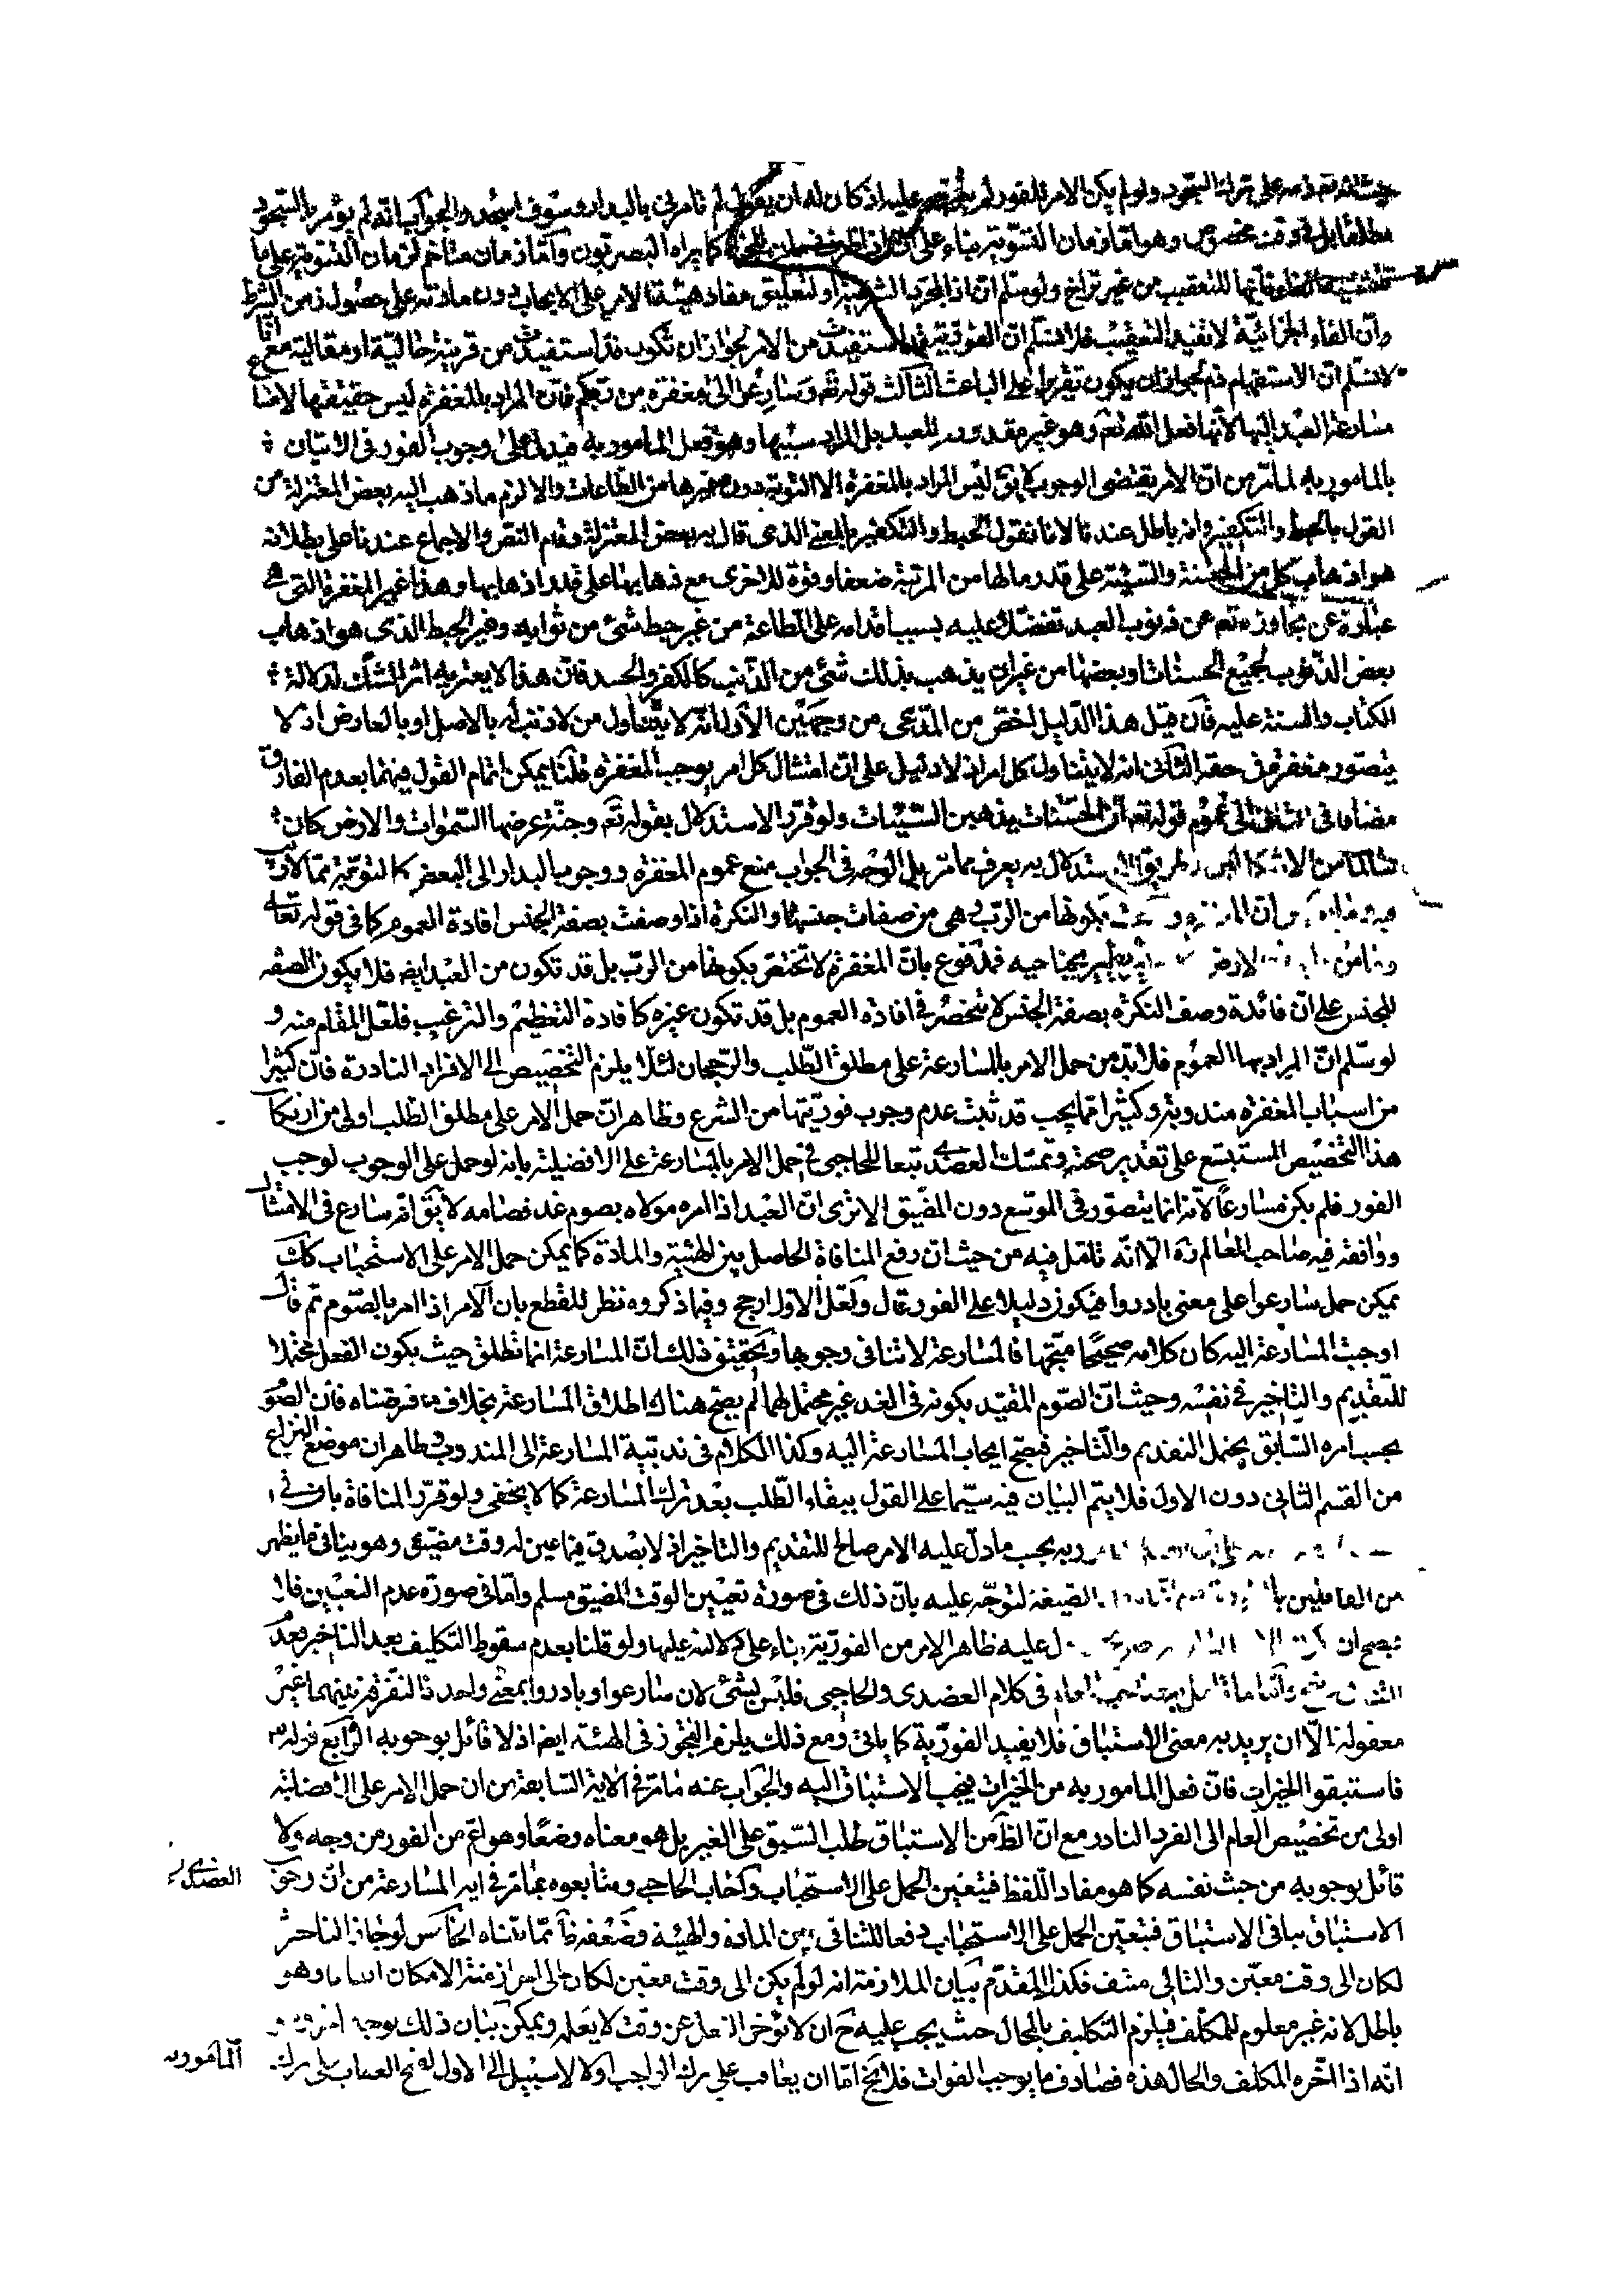 حيث انه تعم ذمه على ترك السجود ولو لم يكن الامر للفور لم يتجه عليه اذ كان له ان يقول لم تامرنى بالبدار وسوف اسجد والجواب انه لم يؤمر بالسجود
مطلقا بل فى وقت مخصوص وهو اما زمان التسوية بناء على كما يراه البصريون وامّا زمان متاخر لزمان التسوية على ما
تقتضيه الفاء فانّها للتعقيب من غير تراخ ولو سلم انّ اذا لمجرّد الشرطية او لتعليق مفاد هيئة الامر على الايجاب دون مادته على حصول زمن الشرط
وانّ الفاء الجزائيّة لا تفيد التعقيب فلا نسلّم انّ الفوريّة قد استفيدت من الامر لجواز ان تكون قد استفيدت من قرينة حاليّة او مقالية مع انّا
لا نسلّم انّ الاستفهام ذم لجواز ان يكون تقريرا على الباعث الثالث قوله تعم وسارعوا الى مغفرة من ربّكم فانّ المراد بالمغفرة ليس حقيقتها لامتناع
مسارعة العبد اليها لانّها فعل الله تعم وهو غير مقدور للعبد بل المراد سببها وهو فعل المامور به فيدل على وجوب الفور فى الاتيان
بالمامور به لما مرّ من انّ الامر يقتضى الوجوب لا يق ليس المراد بالمغفرة الا التوبة دون غيرها من الطّاعات والا لزم ما ذهب اليه بعض المعتزلة من
القول بالحبط والتكفير وانه باطل عندنا لانا نقول الحبط والتكفير بالمعنى الذى قال به بعض المعتزلة وقام النّص والاجماع عندنا على بطلانه
هو اذهاب كل من الحسنة والسّيئة على قدر ما لها من المرتبة ضعفا وقوة للاخرى مع ذهابها على قدر اذهابها وهذا غير المغفرة التى هى
عبارة عن تجاوزه تعم عن ذنوب العبد تفضّلا عليه بسبب اقدامه على الطاعة من غير حبط شئ من ثوابه وغير الحبط الذى هو اذهاب
بعض الذّنوب لجميع الحسنات او بعضها من غير ان يذهب بذلك شئ من الذّنب كالكفر والحسد فانّ هذا لا يعتريه اثر الشّك لدلالة
الكتاب والسنة عليه فان قيل هذا الدّليل اخصّ من المدّعى من وجهين الاول انه لا يتناول من لا ذنب له بالاصل او بالعارض اذ لا
يتصور مغفرة فى حقه الثانى انه لا يتناول كل امر اذ لا دليل على انّ امتثال كل امر يوجب المغفرة قلنا يمكن اتمام القول فيهما بعدم الفارق
مضافا فى الثانى الى عموم قوله تعم ان الحسنات يذهبن السّيّئات ولو قرّر الاستدلال بقوله تعم وجنّة عرضها السّموات والارض كان
سالما من الاشكالين وطريق الاستدلال به يعرف مما مرّ بل الوجه فى الجواب منع عموم المغفرة ووجوب البدار الى البعض كالتوبة ممّا لا ريب
فيه وما من انّ المغفرة وكونها من الرّب هى من صفات جنسها والنكرة اذا وصفت بصفة الجنس افادة العموم كما فى قوله تعالى
وما من دابة فى الارض ولا طائر يطير بجناحيه فمدفوع بانّ المغفرة لا تختصّ بكونها من الربّ بل قد تكون من العبد ايضا فلا يكون الصفه
للجنس على انّ فائدة وصف النكرة بصفة الجنس لا تنحصر فى افادة العموم بل قد تكون غيره كافادة التعظيم والترغيب فلعل المقام منه و
لو سلّم انّ المراد بها العموم فلا بدّ من حمل الامر بالمسارعة على مطلق الطّلب والرّجحان لئلّا يلزم التخصيص الى الافراد النادرة فانّ كثيرا
من اسباب المغفرة مندوبة وكثيرا ممّا يجب قد ثبت عدم وجوب فوريّتها من الشرع وظاهر انّ حمل الامر على مطلق الطلب اولى من ارتكاب
هذا التخصيص المستبشع على تقدير صحته وتمسّك العضدى تبعا للحاجبى فى حمل الامر بالمسارعة على الافضلية بانه لو حمل على الوجوب لوجب
الفور فلم يكن مسارعا لانّه انما يتصوّر فى الموسّع دون المضيّق الا ترى انّ العبد اذا امره مولاه بصوم غد فصامه لا يق انّه سارع فى الامتثال
ووافقه فيه صاحب المعالم ره الا انّه تامّل فيه من حيث انّ رفع المنافاة الحاصل بين الهيئة والمادة كما يمكن حمل الامر على الاستحباب كك
يمكن حمل سارعوا على معنى بادروا فيكون دليلا على الفور قال ولعلّ الاوّل ارجح وفيما ذكروه نظر للقطع بانّ الآمر اذا امر بالصّوم ثم قال
اوجبت المسارعة اليه كان كلامه صحيحا متّجها فالمسارعة لا تنافى وجوبها وتحقيق ذلك انّ المسارعة انما تطلق حيث يكون الفعل محتملا
للتقديم والتاخير فى نفسه وحيث انّ الصّوم المقيّد بكونه فى الغد غير محتمل لهما لم يصح هناك اطلاق المسارعة بخلاف ما فرضناه فانّ الصّوم
بحسب امره السّابق يحتمل التقديم والتّاخير فيصح ايجاب المسارعة اليه وكذا الكلام فى ندبيّة المسارعة الى المندوب وظاهر ان موضع النزاع
من القسم الثّانى دون الاوّل فلا يتم البيان فيه سيّما على القول ببقاء الطّلب بعد ترك المسارعة كما لا يخفى ولو قرّر المنافاة بانّ فى
به بحسب ما دلّ عليه الامر صالح للتقديم والتاخير اذ لا يصدق فيما عين له وقت مضيّق وهو ينافى ما يظهر
من القائلين الصّيغة لتوجّه عليه بانّ ذلك فى صورة تعيين الوقت المضيق مسلم وامّا فى صورة عدم التعيين فلا
تبصح ان عليه ظاهر الامر من الفوريّة بناء على دلالته عليها ولو قلنا بعدم سقوط التكليف بعد التاخير بعد
فى كلام العضدى والحاجبى فليس بشئ لان سارعوا وبادروا بمعنى واحد فالتفرقة بينهما غير
معقولة الّا ان يريد به معنى الاستباق فلا يفيد الفوريّة كما ياتى ومع ذلك يلزم التجوز فى الهيئة ايضا اذ لا قائل بوجوبه الرّابع قوله تعم
فاستبقوا الخيرات فانّ فعل المامور به من الخيرات فيجب الاستباق اليه والجواب عنه ما مرّ فى الاية السّابقة من ان حمل الامر على الافضلية
اولى من تخصيص العام الى الفرد النادر مع انّ الظّ من الاستباق طلب السّبق على الغير بل هو معناه وضعًا وهو اعمّ من الفور من وجه ولا
قائل بوجوبه من حيث نفسه كما هو مفاد اللّفظ فيتعين الحمل على الاستحباب واجاب الحاجبى ومتابعوه بما مرّ فى اية المسارعة من انّ وجوب
العضدى
الاستباق ينافى الاستباق فيتعيّن الحمل على الاستحباب دفعا للتنافى بين المادة والهيئة وضعفه ممّا بيّناه الخامس لو جاز التاخير
لكان الى وقت معيّن والتالى منتف فكذا المقدّم بيان الملازمة انه لو لم يكن الى وقت معيّن لكان الى اخر ازمنة الامكان وهو
باطل لانه غير معلوم للمكلّف فيلزم التكليف بالمحال حيث يجب عليه ح ان لا يؤخر الفعل عن وقت لا يعلمه ويمكن بيان ذلك بوجه اخر وهو
انّه اذا اخّره المكلف والحال هذه فصادف ما يوجب الفوات فلا يخ امّا ان يعاقب على ترك الواجب اولا لا سبيل الى الاول لقبح العقاب على ترك
المأمور به